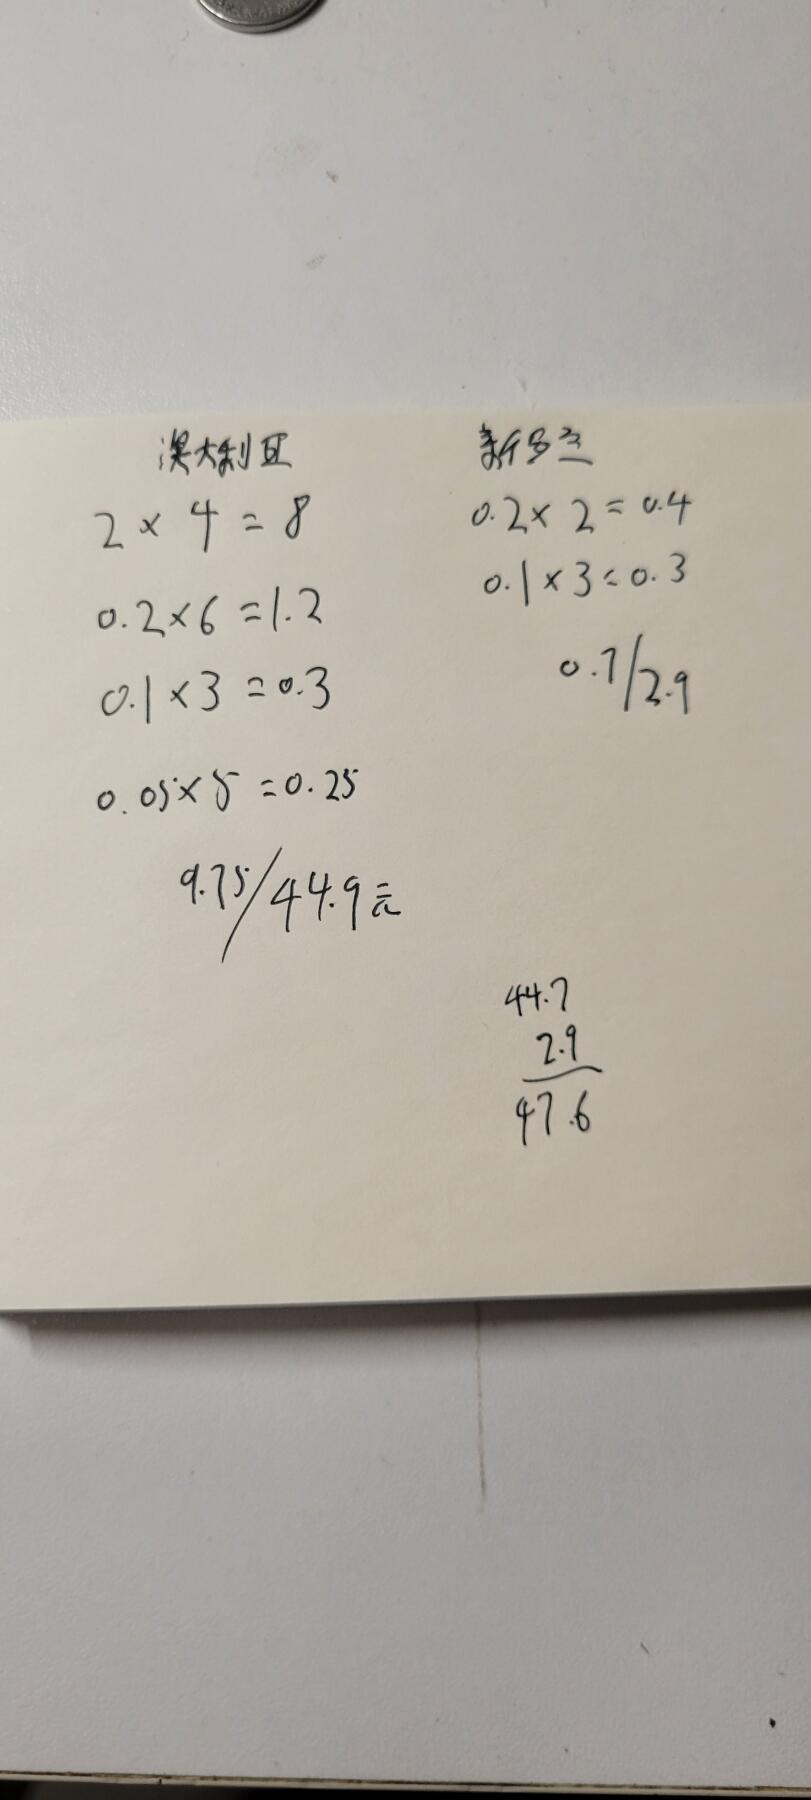 澳大利亚
2 × 4 = 8
0.2 × 6 = 1.2
0.1 × 3 = 0.3
0.05 × 5 = 0.25
9.75/44.9元
新西兰
0.2 × 2 = 0.4
0.1 × 3 = 0.3
0.7/2.9
44.7
2.9
47.6